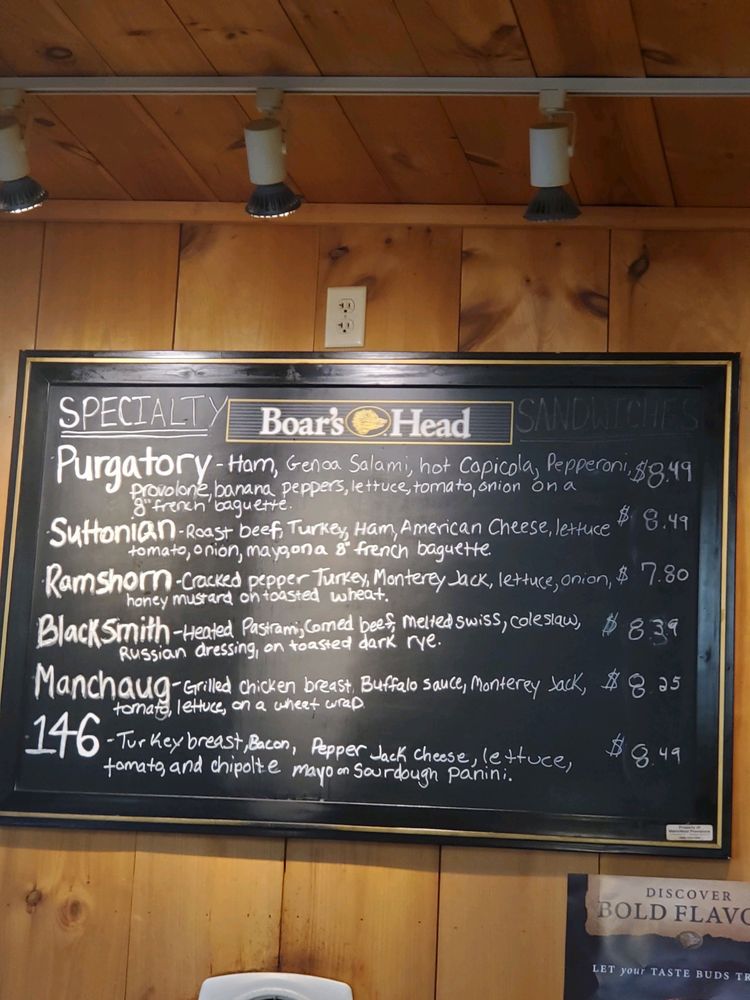 SPECIALTY Boar's Head SANDWICHES
Purgatory - Ham, Genoa Salami, hot Capicola, Pepperoni, $8.49
Provolone, banana peppers, lettuce, tomato, onion on a
8" french baguette.
Suttonian - Roast beef, Turkey, Ham, American Cheese, lettuce $ 8.49
tomato, onion, mayo, on a 8" french baguette
Ramshorn - Cracked pepper Turkey, Monterey Jack, lettuce, onion, $ 7.80
honey mustard on toasted wheat.
BlackSmith - Heated Pastrami, Corned beef, melted swiss, coleslaw, $ 8.39
Russian dressing, on toasted dark rye.
Manchaug - Grilled chicken breast, Buffalo sauce, Monterey Jack, $ 8.25
tomato, lettuce, on a wheat wrap
146 - Turkey breast, Bacon, Pepper Jack Cheese, lettuce, $ 8.49
tomato, and chipolte mayo on Sourdough Panini.
Property of
DISCOVER
BOLD FLAVO
LET your TASTE BUDS TR